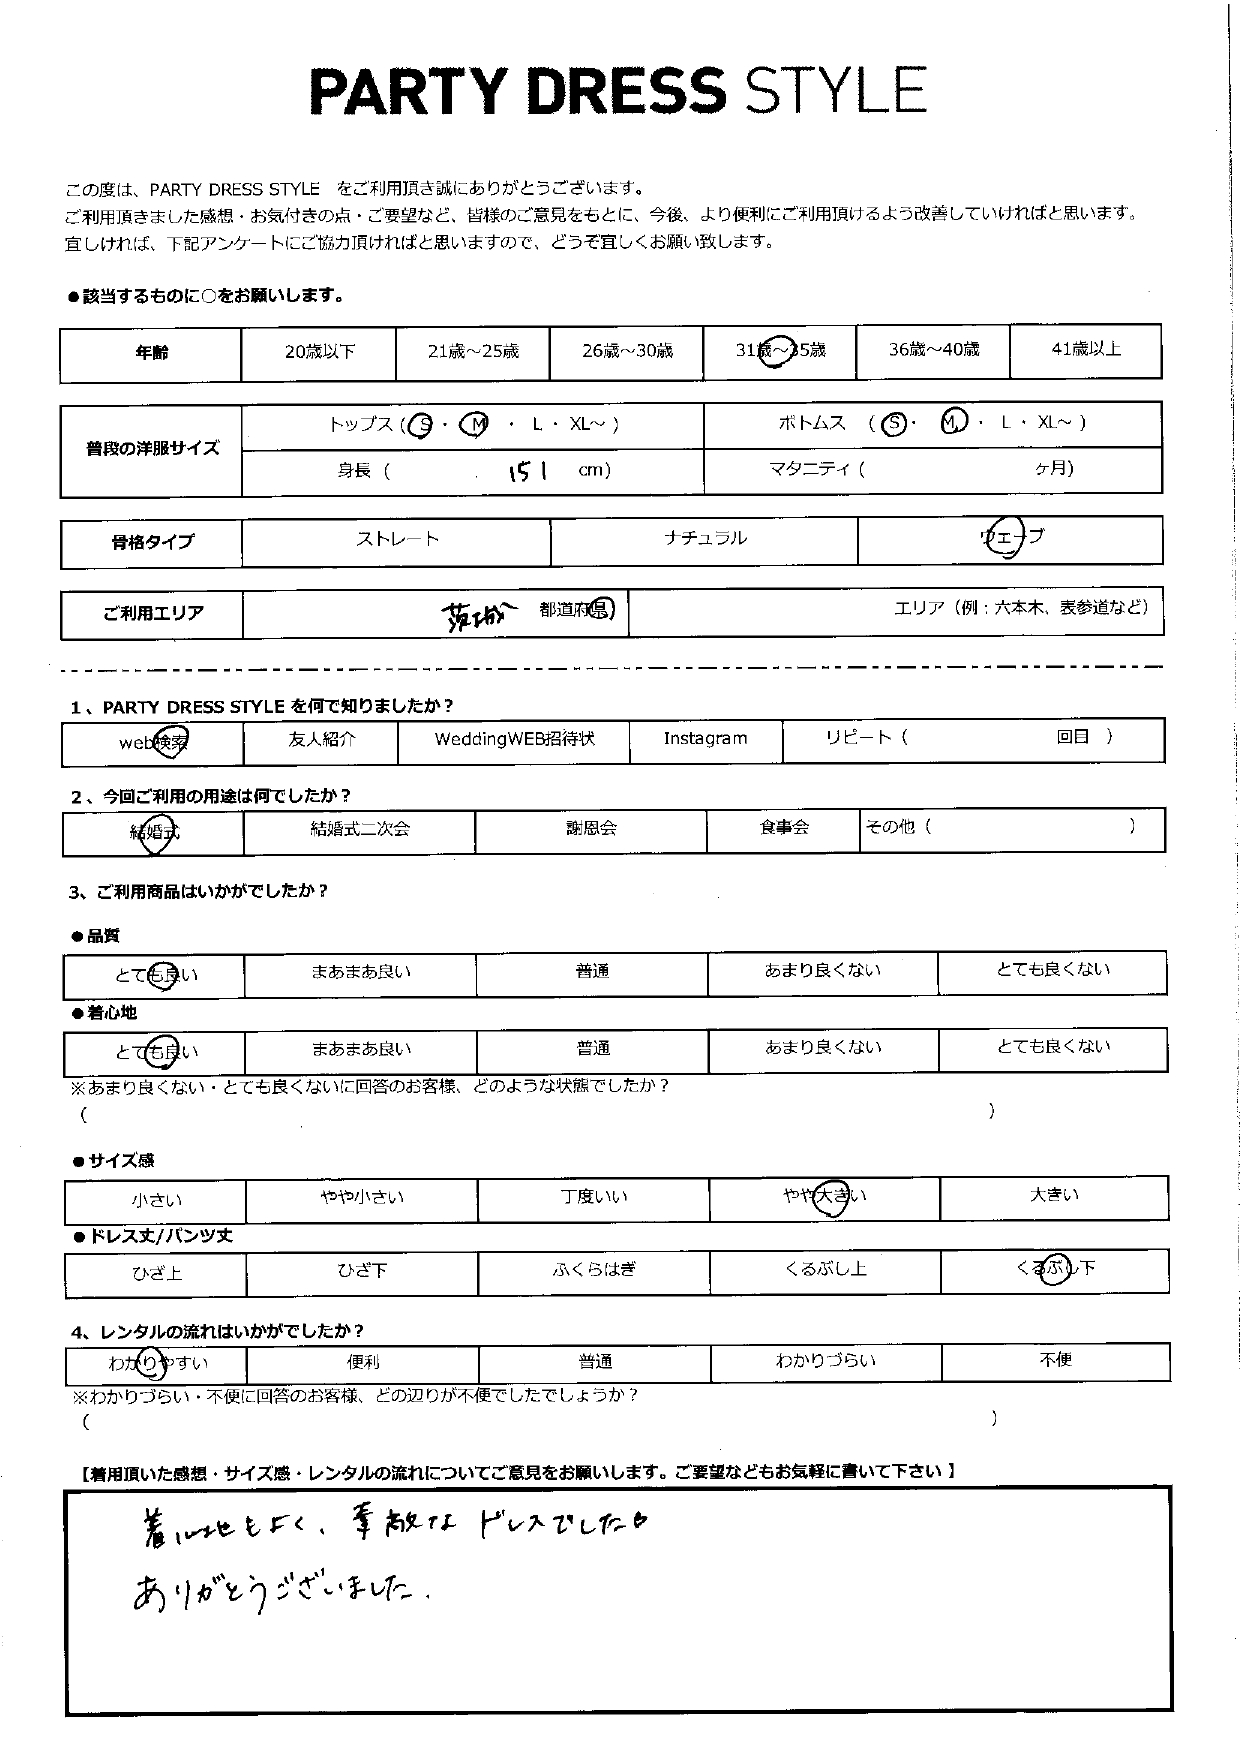 PARTY DRESS STYLE
この度は、PARTY DRESS STYLE をご利用頂き誠にありがとうございます。
ご利用頂きました感想・お気付きの点・ご要望など、皆様のご意見をもとに、今後、より便利にご利用頂けるよう改善していければと思います。
宜しければ、下記アンケートにご協力頂ければと思いますので、どうぞ宜しくお願い致します。
●該当するものに○をお願いします。
年齢 20歳以下 21歳～25歳 26歳～30歳 31歳～35歳 36歳～40歳 41歳以上
普段の洋服サイズ トップス（S・M・L・XL～） ボトムス（S・M・L・XL～）
身長（ 151 cm） マタニティ（ ヶ月）
骨格タイプ ストレート ナチュラル ウェーブ
ご利用エリア 茨城 都道府県 エリア（例：六本木、表参道など）
1、PARTY DRESS STYLE を何で知りましたか？
web検索 友人紹介 WeddingWEB招待状 Instagram リピート（ 回目 ）
2、今回ご利用の用途は何でしたか？
結婚式 結婚式二次会 謝恩会 食事会 その他（ ）
3、ご利用商品はいかがでしたか？
●品質
とても良い まあまあ良い 普通 あまり良くない とても良くない
●着心地
とても良い まあまあ良い 普通 あまり良くない とても良くない
※あまり良くない・とても良くないに回答のお客様、どのような状態でしたか？
（ ）
●サイズ感
小さい やや小さい 丁度いい やや大きい 大きい
●ドレス丈/パンツ丈
ひざ上 ひざ下 ふくらはぎ くるぶし上 くるぶし下
4、レンタルの流れはいかがでしたか？
わかりやすい 便利 普通 わかりづらい 不便
※わかりづらい・不便に回答のお客様、どの辺りが不便でしたでしょうか？
（ ）
【着用頂いた感想・サイズ感・レンタルの流れについてご意見をお願いします。ご要望などもお気軽に書いて下さい】
着心地もよく、素敵なドレスでした
ありがとうございました.